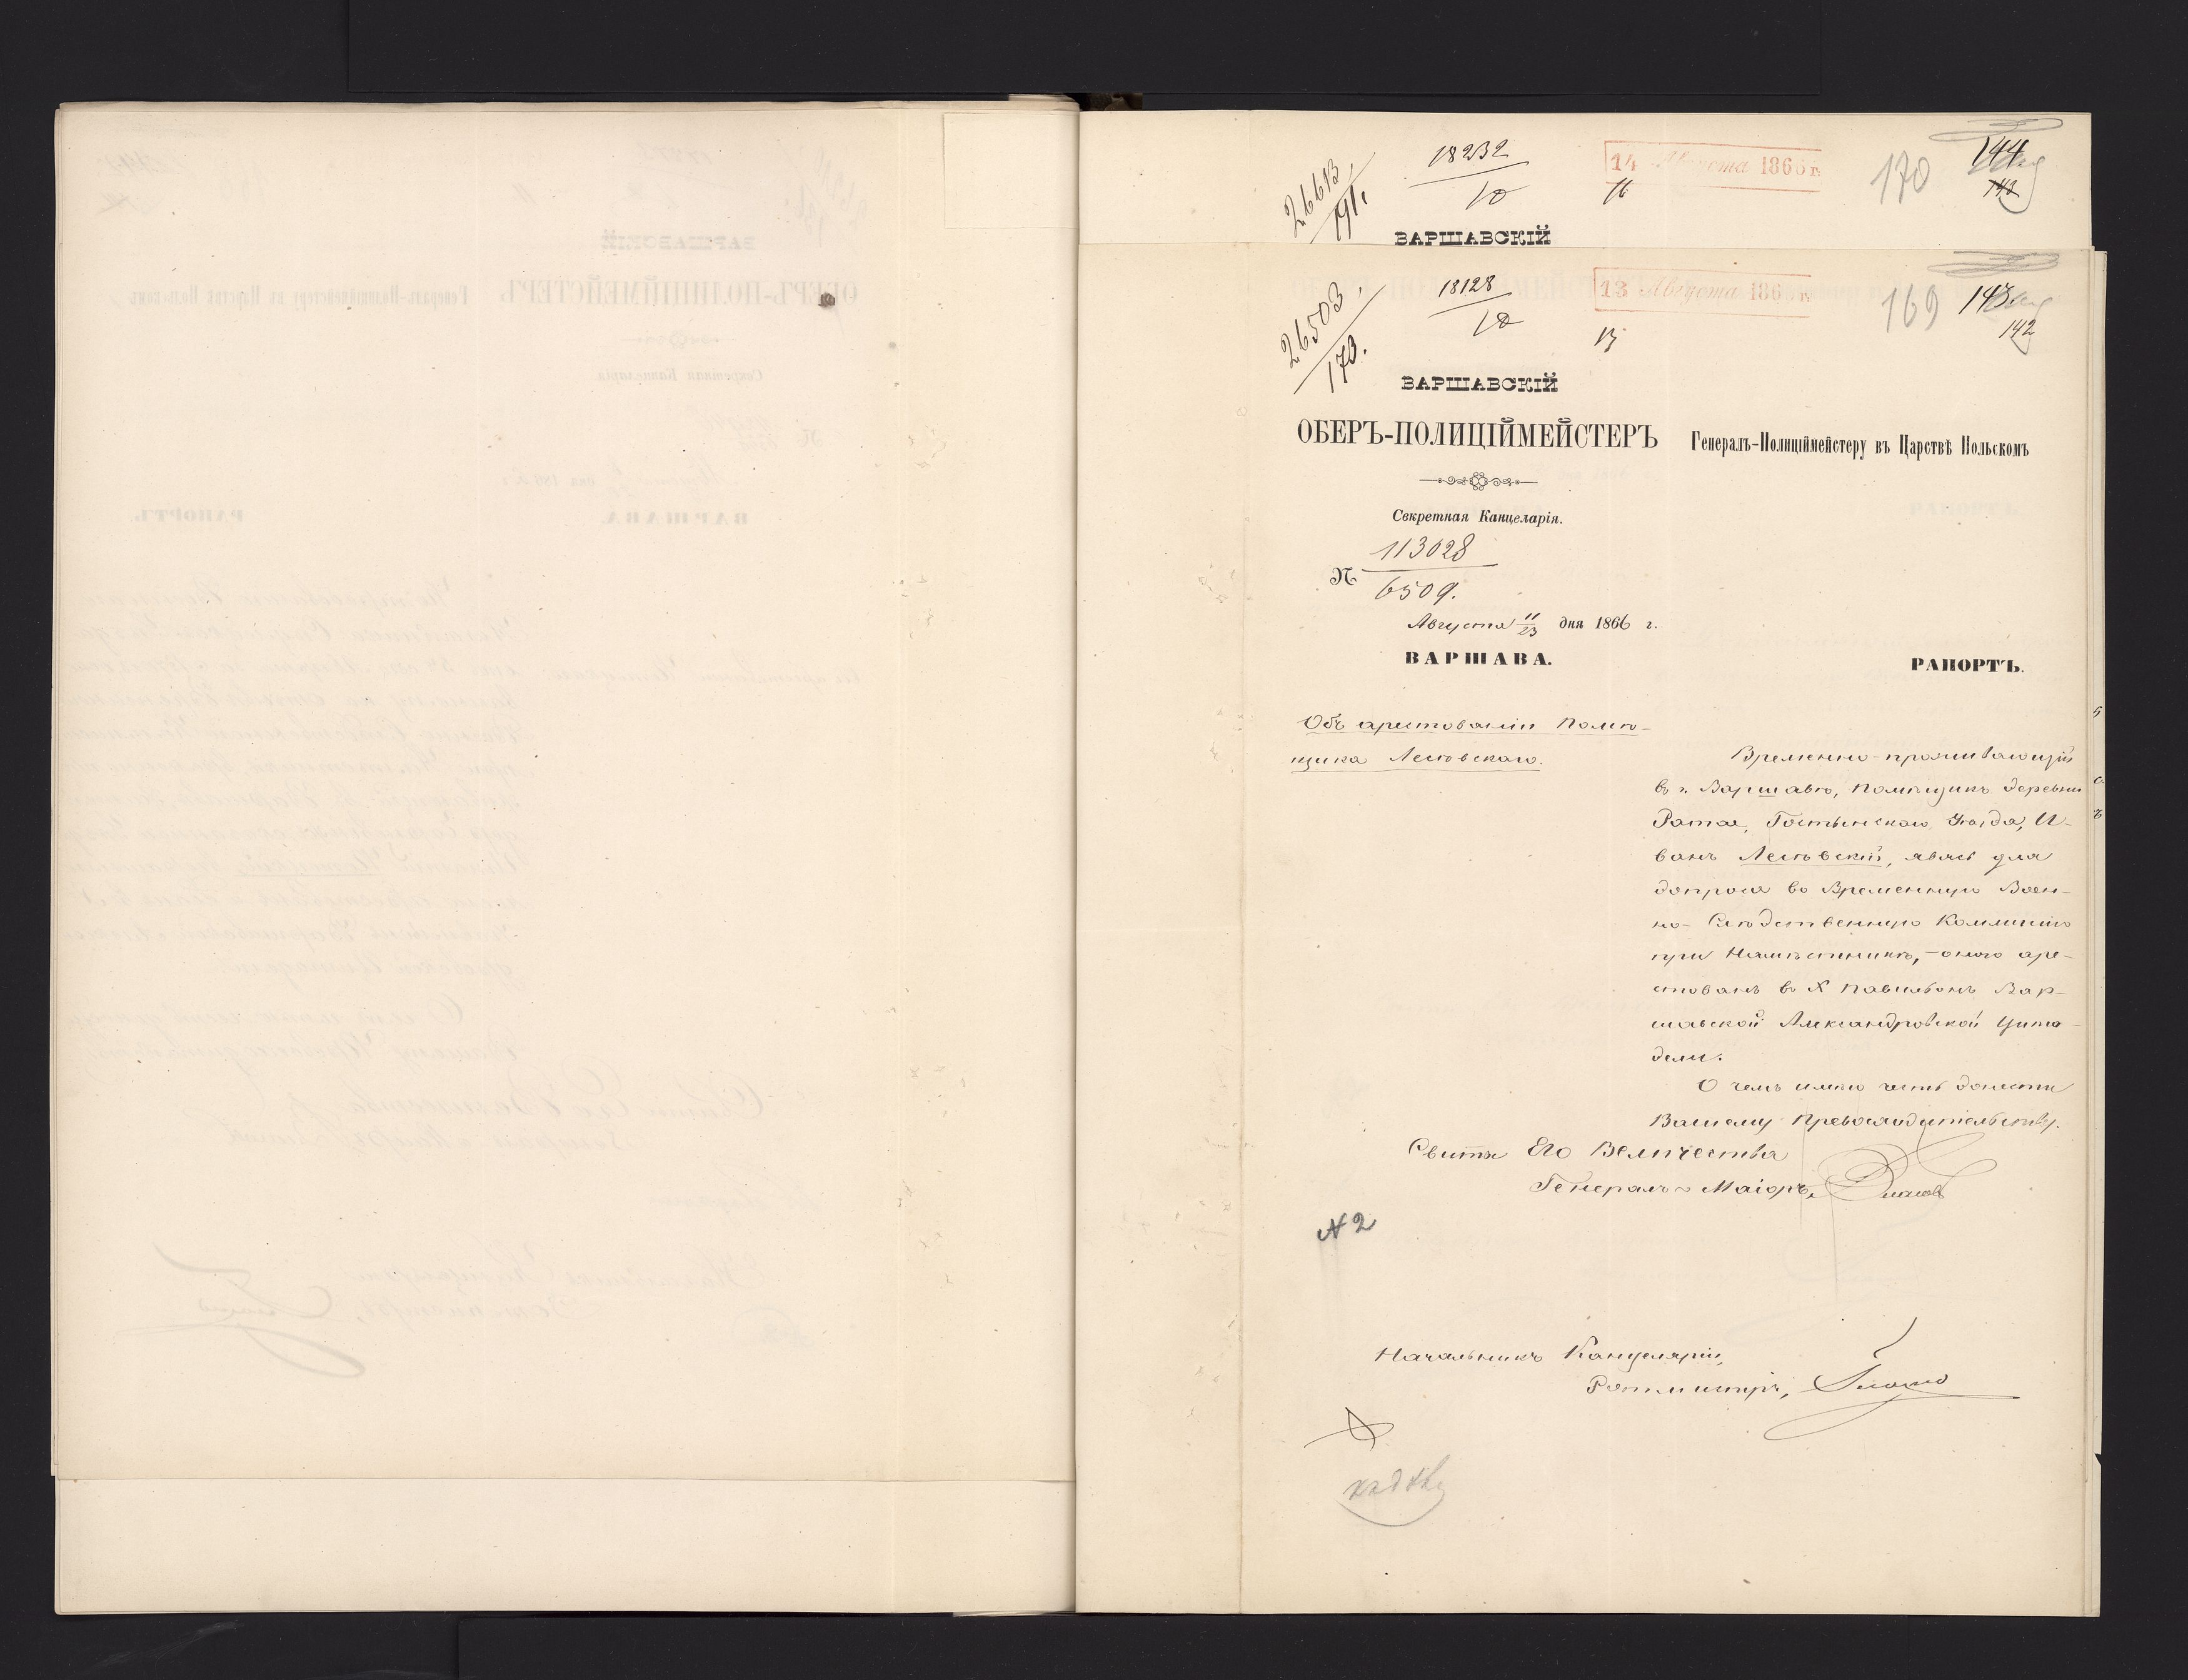 26613
191.
18232
10
14 Августа 1866 г.
16
170
144
143
ВАРШАВСКІЙ
26503.
173.
18128
10
13 Августа 186 г.
13
169
143
142
ВАРШАВСКІЙ
ОБЕРЪ-ПОЛИЦІЙМЕЙСТЕРЪ
Генералъ-Полиціймейстеру въ Царствѣ Польскомъ
Секретная Канцеларія.
№ 113028
6509.
Августа 11/23 дня 1866 г.
ВАРШАВА.
РАПОРТЪ.
Объ арестованіи Помѣ-
щика Лесговскаго.
Временно-проживающій
въ г. Варшавѣ, Помѣщикъ деревни
Ратае, Гостынскаго Уѣзда, И-
ванъ Лесговскій, явясь для
допроса во Временную Воен-
но-Слѣдственную Коммисію
при Намѣстникѣ, оною аре-
стованъ въ X Павильонъ Вар-
шавской Александровской Цита-
дели.
О чемъ имѣю честь донести
Вашему Превосходительству.
Свиты Его Величества
Генералъ-Маіоръ,
№ 2
Начальникъ Канцеляріи,
Ротмистръ,